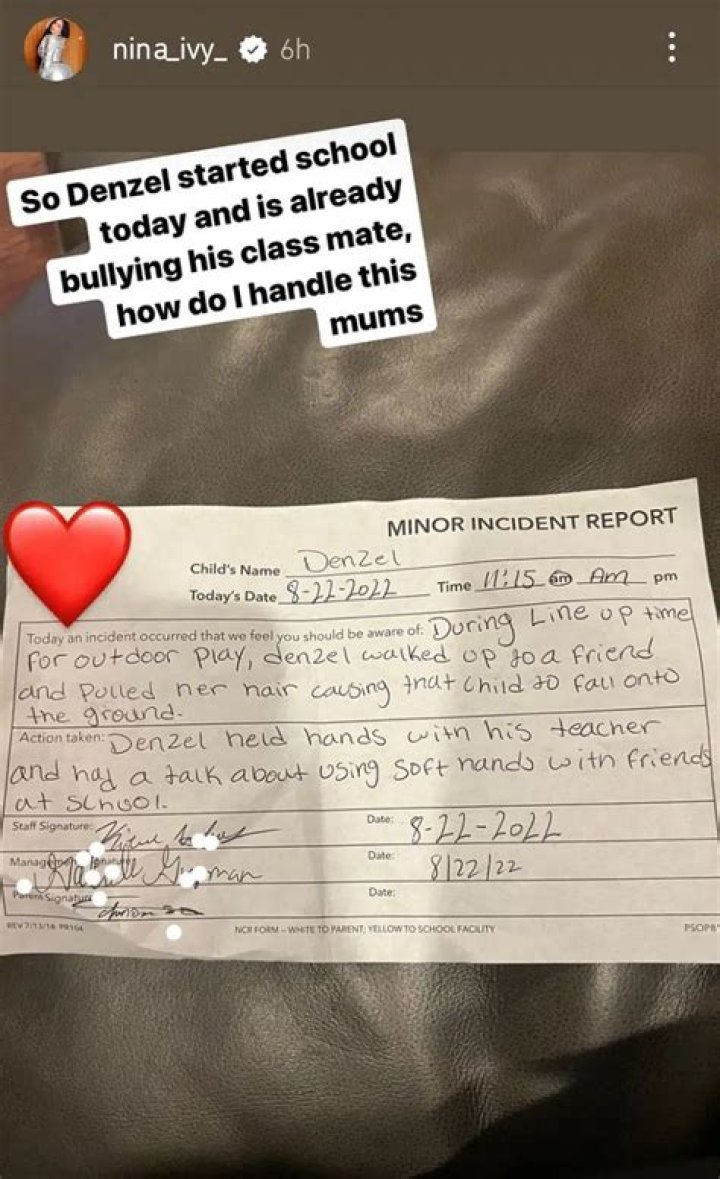 nina_ivy_ 6h
So Denzel started school
today and is already
bullying his class mate,
how do I handle this
mums
MINOR INCIDENT REPORT
Child's Name Denzel
Today's Date 8-22-2022 Time 11:15 am Am pm
Today an incident occurred that we feel you should be aware of: During Line up time
for outdoor play, denzel walked up to a friend
and pulled her hair causing that child to fall onto
the ground.
Action taken: Denzel held hands with his teacher
and had a talk about using soft hands with friends
at school.
Staff Signature: Date: 8-22-2022
Management Signature: Date: 8/22/22
Parent Signature: Date:
REV 7/13/16 PR104 NCR FORM – WHITE TO PARENT; YELLOW TO SCHOOL FACILITY